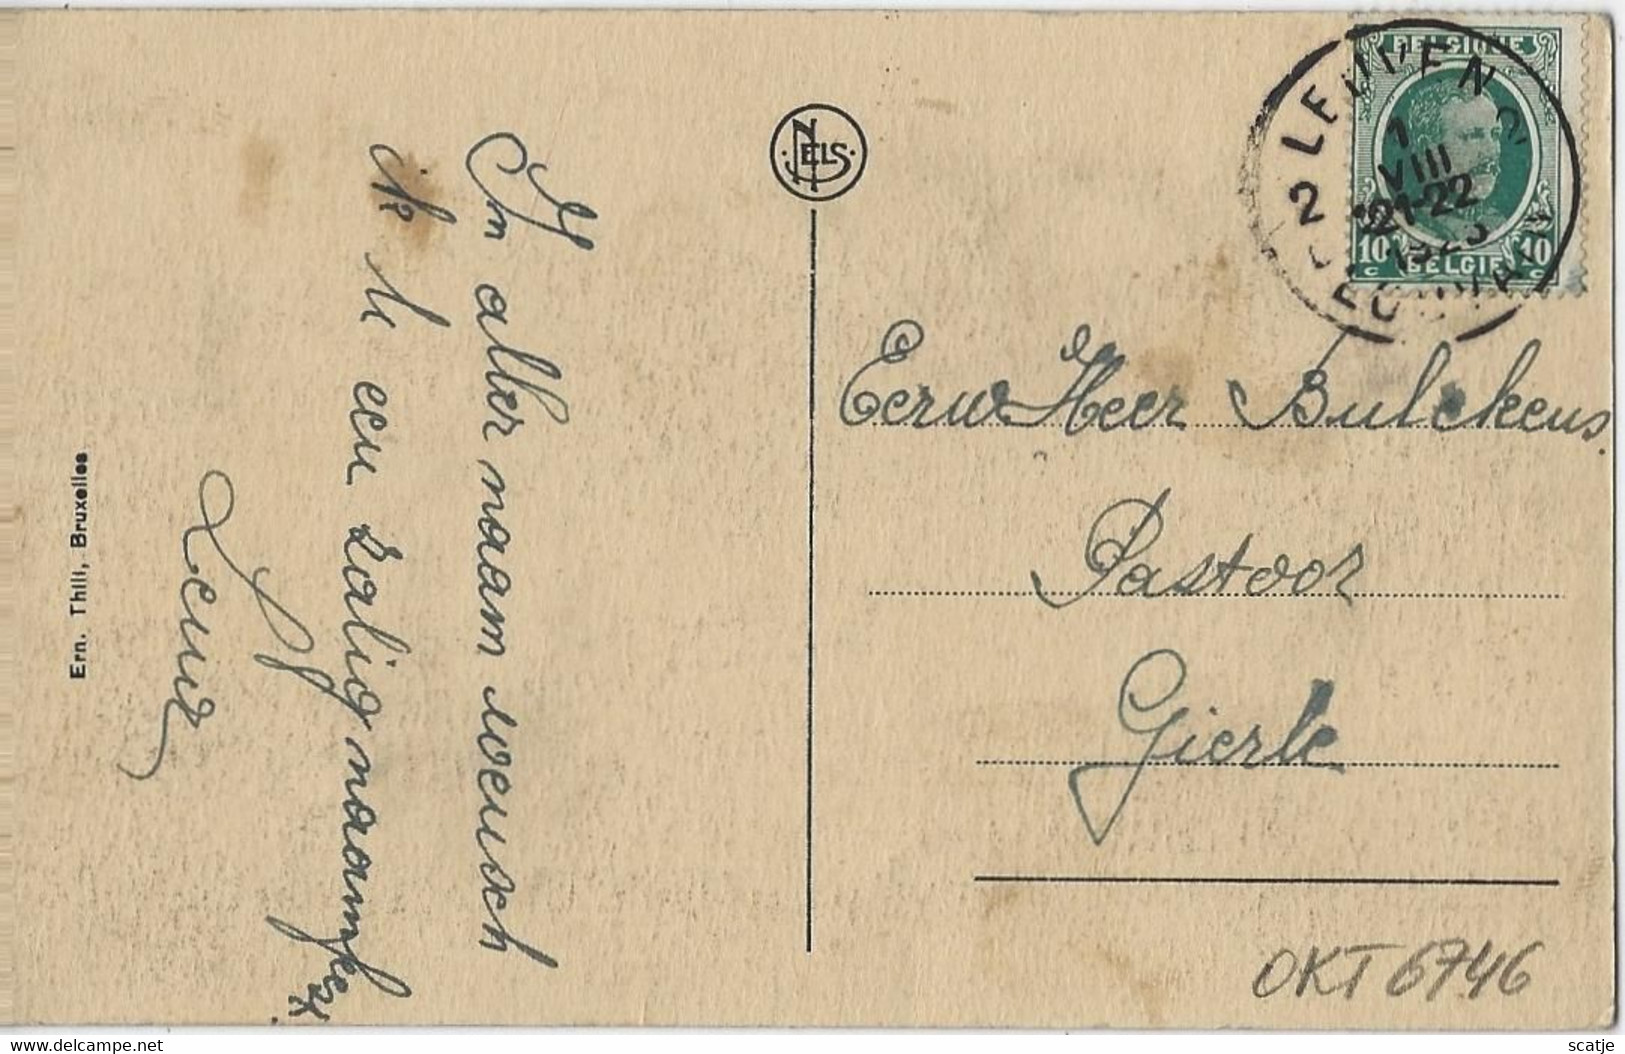 In aller naam wensch
ik U een zalig naamfeest
Ern. Thill, Bruxelles
NELS
BELGIQUE
10 c
BELGIË
10 c
LEUVEN
2
2
1
VIII
21-22
LOUVAIN
Eerw Heer Bulckens
Pastoor
Gierle
OKT 6746
www.delcampe.net
scatje